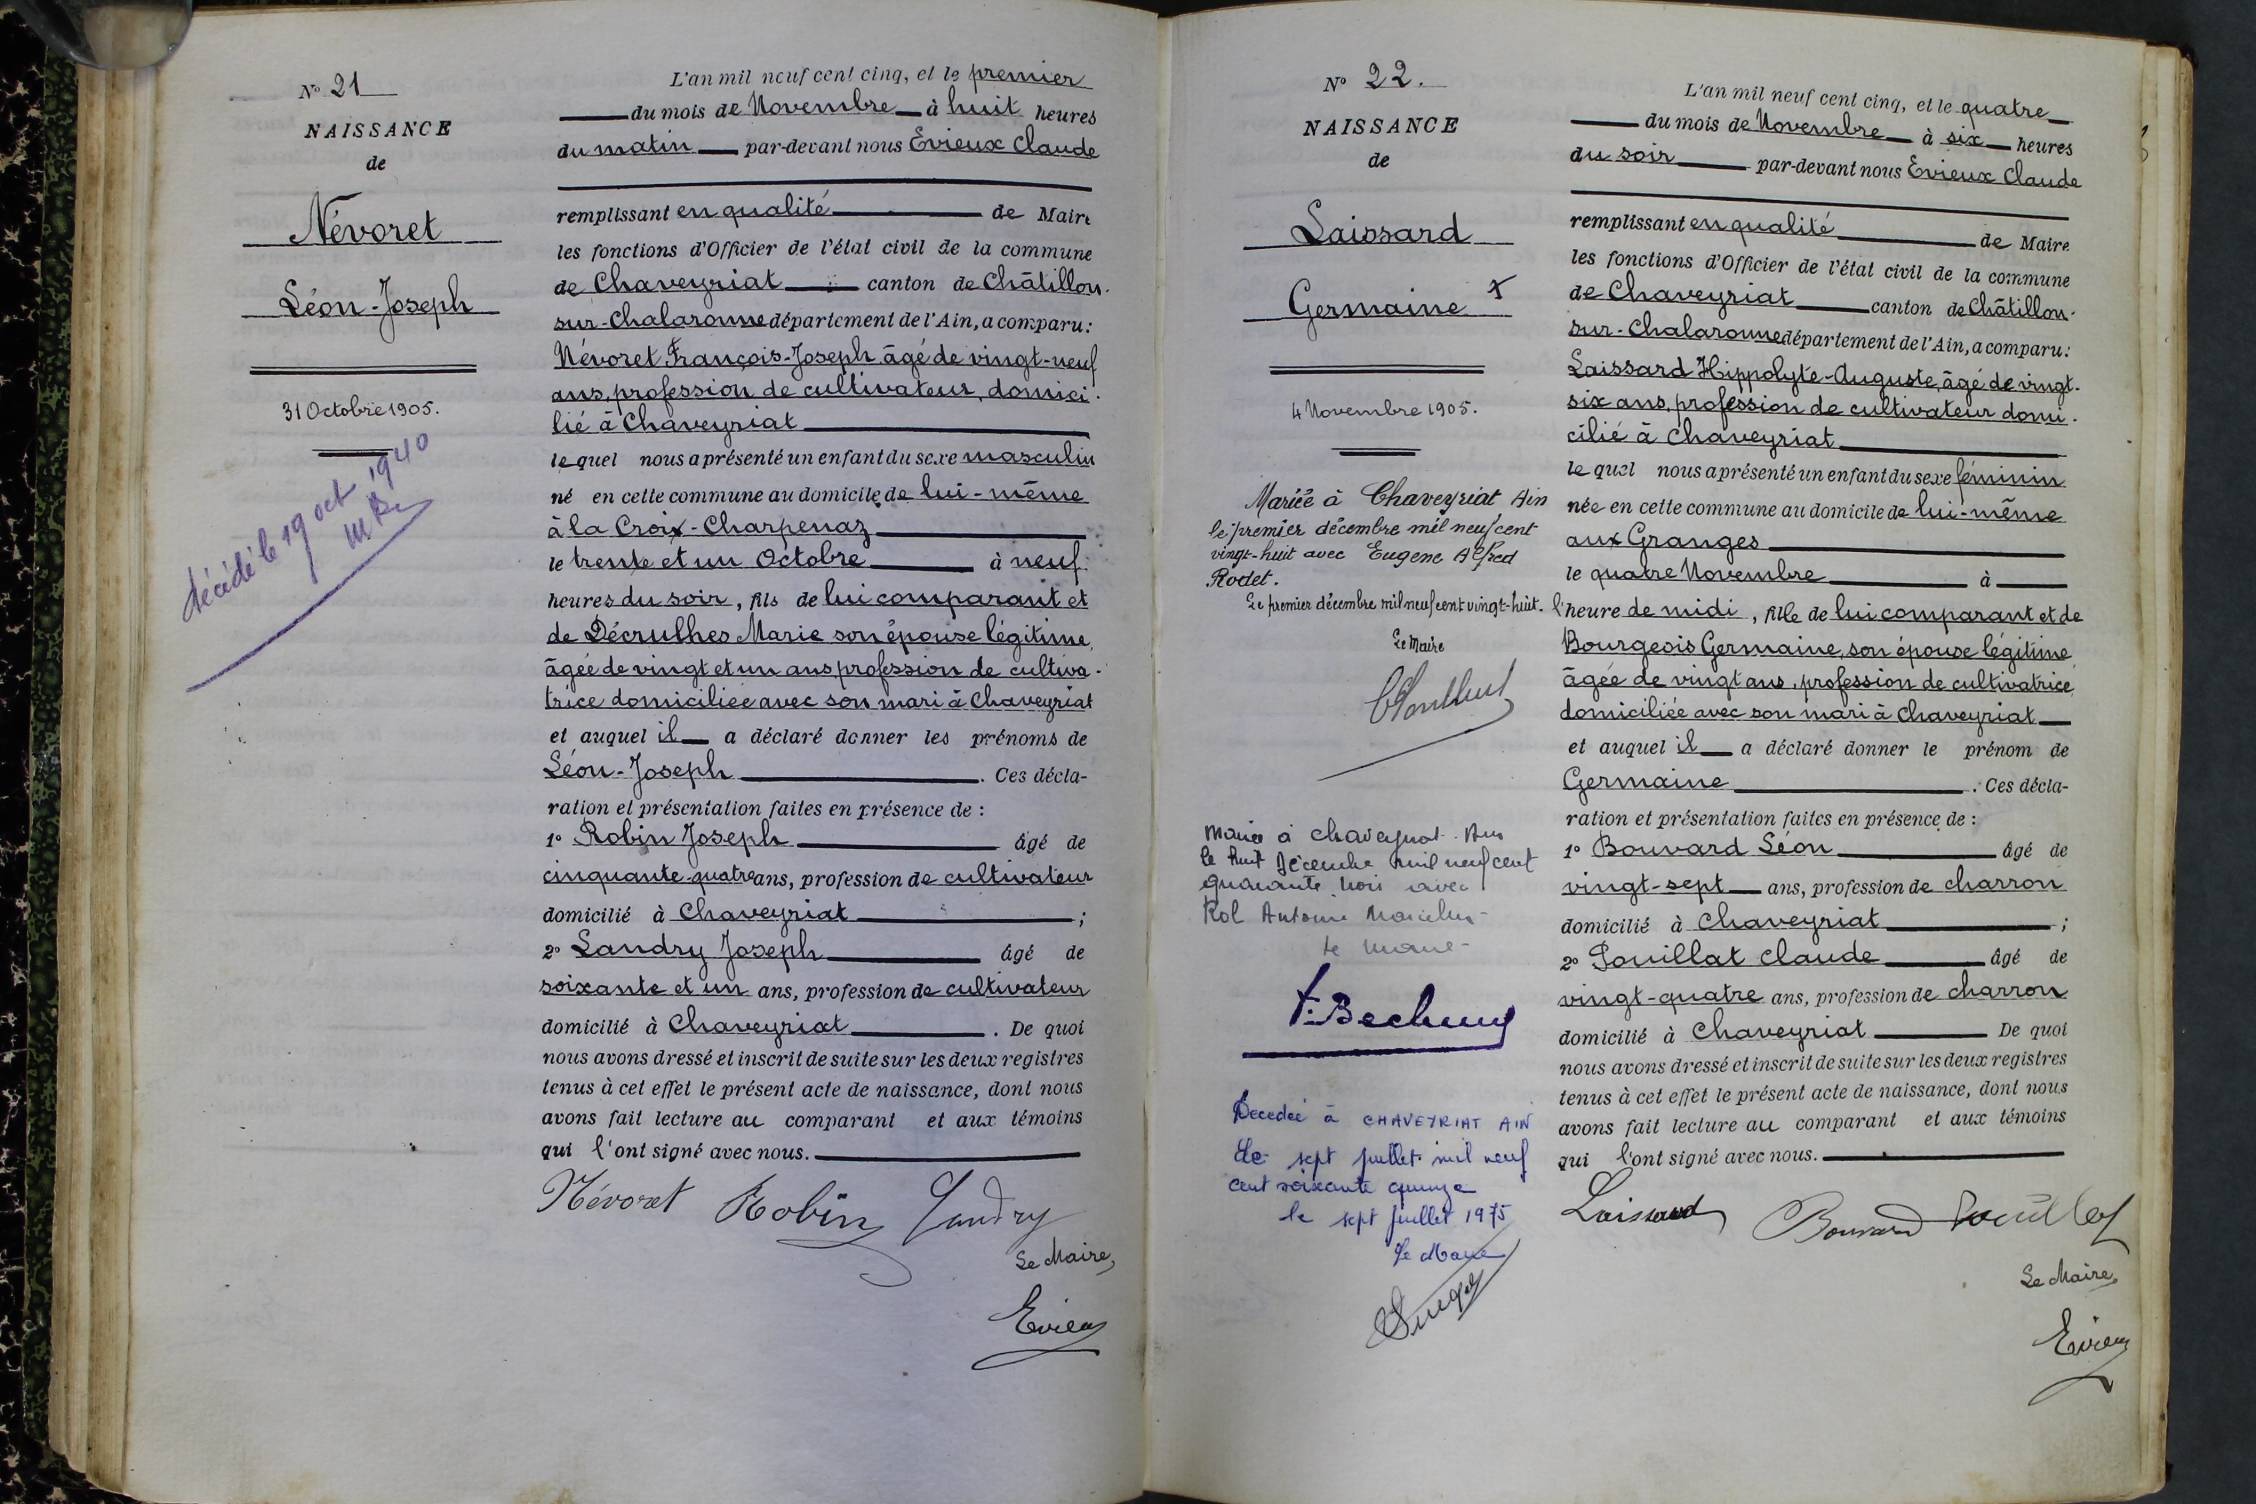 N° 21
NAISSANCE
de
Névoret
Léon-Joseph
31 Octobre 1905.
décédé le 19 oct 1940
L'an mil neuf cent cinq, et le premier
du mois de Novembre à huit heures
du matin par-devant nous Evieux Claude
remplissant en qualité de Maire
les fonctions d'Officier de l'état civil de la commune
de Chaveyriat canton de Châtillon-
sur-Chalaronne département de l'Ain, a comparu:
Névoret François-Joseph âgé de vingt-neuf
ans, profession de cultivateur, domici-
lié à Chaveyriat
lequel nous a présenté un enfant du sexe masculin
né en cette commune au domicile de lui-même
à la Croix-Charpenaz
le trente et un Octobre à neuf
heures du soir, fils de lui comparant et
de Décrulhes Marie son épouse légitime,
âgée de vingt et un ans, profession de cultiva-
trice domiciliée avec son mari à Chaveyriat
et auquel il a déclaré donner les prénoms de
Léon-Joseph. Ces décla-
ration et présentation faites en présence de :
1° Robin Joseph âgé de
cinquante-quatre ans, profession de cultivateur
domicilié à Chaveyriat ;
2° Landry Joseph âgé de
soixante et un ans, profession de cultivateur
domicilié à Chaveyriat. De quoi
nous avons dressé et inscrit de suite sur les deux registres
tenus à cet effet le présent acte de naissance, dont nous
avons fait lecture au comparant et aux témoins
qui l'ont signé avec nous.
Névoret Robin Landry
Le Maire,
Evieux
N° 22.
NAISSANCE
de
Laissard
Germaine
4 Novembre 1905.
Mariée à Chaveyriat Ain
le premier décembre mil neuf cent
vingt-huit avec Eugene Alfred
Rodet.
Le premier décembre mil neuf cent vingt-huit.
Le Maire
Mariée à Chaveyriat Ain
le huit Décembre mil neuf cent
quarante trois avec
Rol Antoine Marcelin
Le Maire
Décédée à CHAVEYRIAT AIN
Le sept juillet mil neuf
cent soixante quinze
le sept juillet 1975
Le Maire
L'an mil neuf cent cinq, et le quatre
du mois de Novembre à six heures
du soir par-devant nous Evieux Claude
remplissant en qualité de Maire
les fonctions d'Officier de l'état civil de la commune
de Chaveyriat canton de Châtillon-
sur-Chalaronne département de l'Ain, a comparu:
Laissard Hippolyte-Auguste, âgé de vingt-
six ans, profession de cultivateur domi-
cilié à Chaveyriat
lequel nous a présenté un enfant du sexe féminin
née en cette commune au domicile de lui-même
aux Granges
le quatre Novembre à
l'heure de midi, fille de lui comparant et de
Bourgeois Germaine, son épouse légitime
âgée de vingt ans, profession de cultivatrice
domiciliée avec son mari à Chaveyriat
et auquel il a déclaré donner le prénom de
Germaine. Ces décla-
ration et présentation faites en présence de :
1° Bouvard Léon âgé de
vingt-sept ans, profession de charron
domicilié à Chaveyriat ;
2° Pouillat Claude âgé de
vingt-quatre ans, profession de charron
domicilié à Chaveyriat De quoi
nous avons dressé et inscrit de suite sur les deux registres
tenus à cet effet le présent acte de naissance, dont nous
avons fait lecture au comparant et aux témoins
qui l'ont signé avec nous.
Laissard Bouvard Pouillat
Le Maire,
Evieux